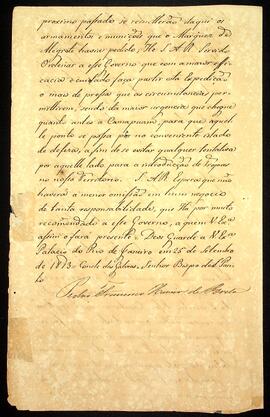 proximo passado se remetterão daqui os
armamentos e munições que o Marquez de
Alegrete havia pedido. He S. A. R. Servido
Ordenar a esse Governo que com a maior effi-
cacia e cuidado faça partir esta Expedição
o mais de pressa que as circunstancias per-
mittirem, sendo da maior urgencia que chegue
quanto antes a Camapuam, para que aquel-
le ponto se possa pôr no conveniente estado
de defeza, a fim de se evitar qualquer tentativa
por aquelle lado, para a introducção de Tropas
no nosso Territorio. S. A. R. espera que não
haverá a menor omissão em hum negocio
de tanta responsabilidade, que Ha por muito
recomendado a esse Governo, a quem V. Exa
assim o fará presente. Deos Guarde a V. Exa
Palacio do Rio de Janeiro em 25 de Setembro
de 1813. Conde das Galveas. Senhor Bispo de S. Pau-
lo
Francisco de